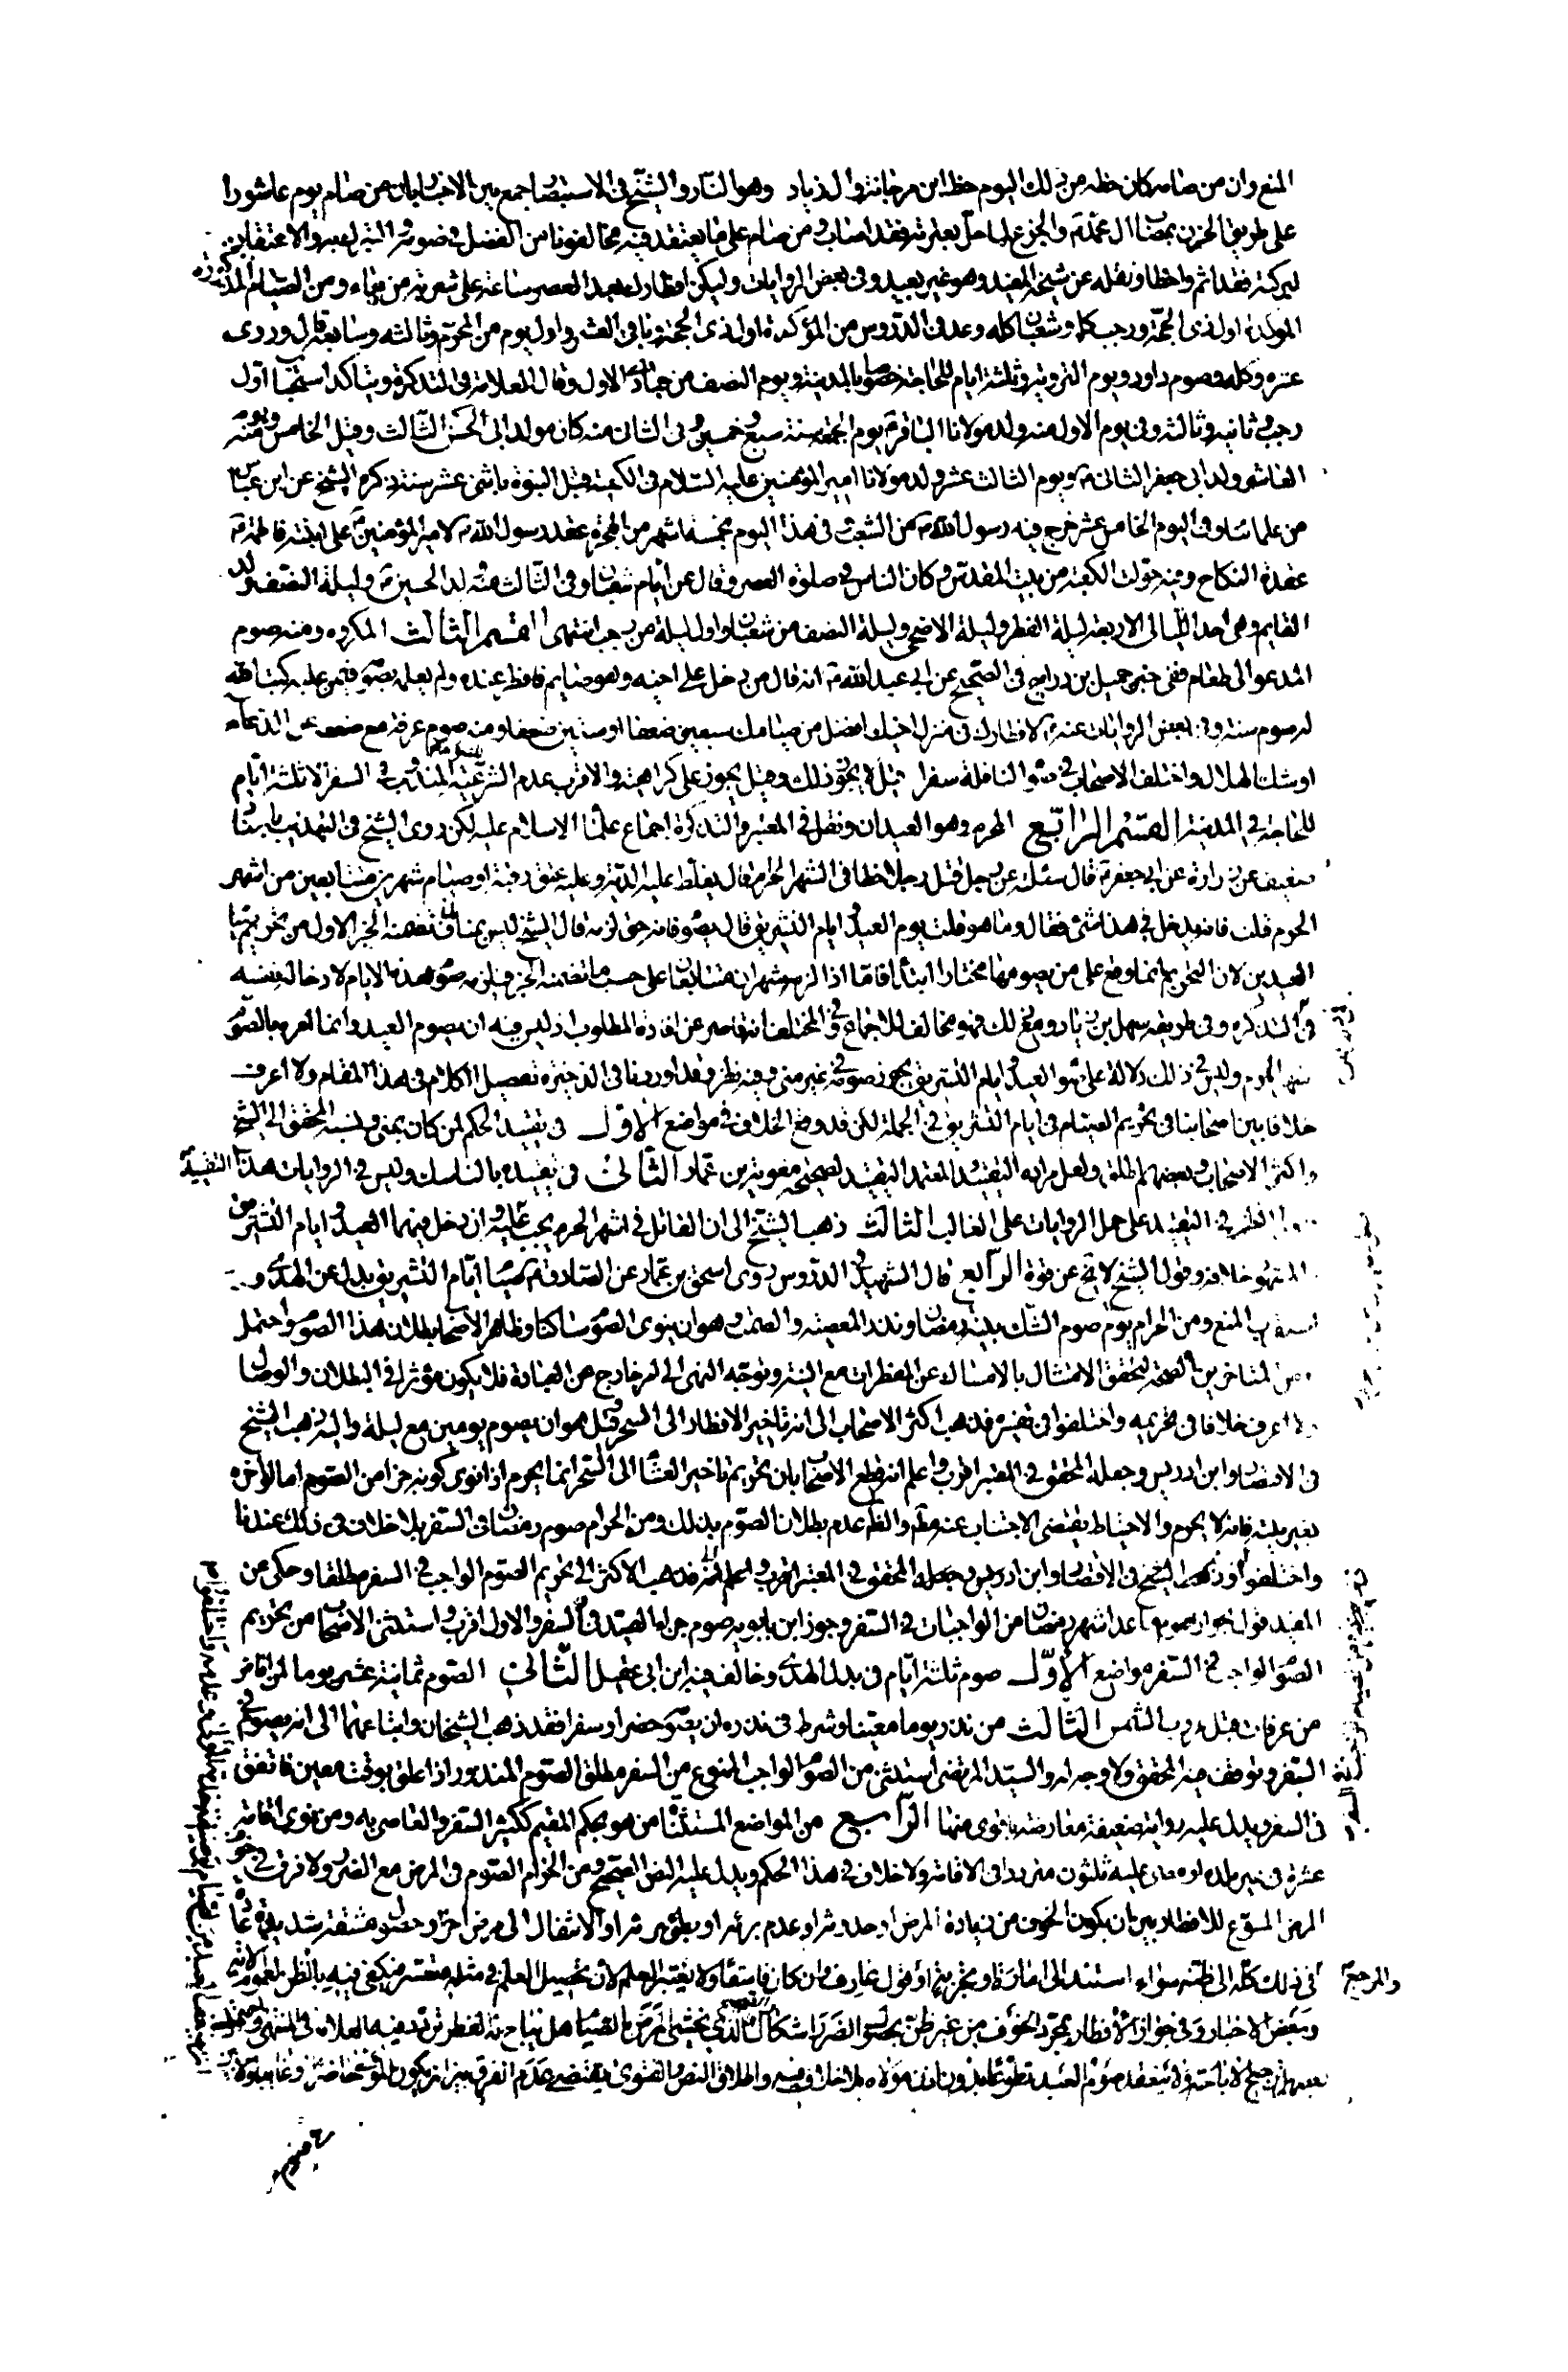 المنع وان من صامه كان حظه من ذلك اليوم حظ ابن مرجانة وال زياد وهو النار والشيخ في الاستبصار جمع بين الاخبار بان من صام يوم عاشورا
على طريق الحزن بمصاب ال محمد والجزع لما حل بعترته فقد اصاب ومن صام على ما يعتقد فيه مخالفونا من الفضل في صومه والتبرك به والاعتقاد
لبركته فقد اثم واخطا ونقله عن شيخه المفيد وهو غير بعيد وفي بعض الروايات وليكن افطارك بعد العصر بساعة على شربة من ماء ومن الصيام
المؤكدة اول ذي الحجة ورجب كله وشعبان كله وعد في الدروس من المؤكدة اول ذي الحجة وباقي العشر واول يوم من المحرم وثالثه وسابعه قال وروى
عشره وكله وصوم داود ويوم التروية وثلثة ايام للحاجة خصوصا بالمدينة ويوم النصف من جمادى الاول وقال العلامة في التذكرة ويتاكد استحباب اول
رجب وثانيه وثالثه وفي يوم الاول منه ولد مولانا الباقر يوم الجمعة سنة سبع وخمسين وفي الثاني منه كان مولد ابي الحسن الثالث وقيل الخامس ويوم
العاشر ولد ابي جعفر الثاني ويوم الثالث عشر ولد مولانا امير المؤمنين عليه السلام في الكعبة قبل النبوة باثني عشر سنة ذكره الشيخ عن ابن عياش
من علمائنا وفي اليوم الخامس عشر خرج فيه رسول الله من الشعب وفي هذا اليوم بخمسة اشهر من الهجرة عقد رسول الله لامير المؤمنين على ابنته فاطمة
عقدة النكاح وفيه حولت الكعبة من بيت المقدس وكان الناس في صلوة العصر وقال عن ايام شعبان وفي الثالث منه ولد الحسين وليلة النصف ولد
القايم وهي احد الليالي الاربعة ليلة الفطر وليلة الاضحى وليلة النصف من شعبان واول ليلة من رجب انتهى القسم الثالث المكروه ومنه صوم
المدعو الى طعام ففي خبر جميل بن دراج في الصحيح عن ابي عبد الله انه قال من دخل على اخيه وهو صايم فافطر عنده ولم يعلمه بصومه فيمن عليه كتب الله
له صوم سنة وفي بعض الروايات عنه لافطارك في منزل اخيك افضل من صيامك سبعين ضعفا او ستين ضعفا ومنه صوم عرفة مع ضعفه عن الدعاء
او شك الهلال واختلف الاصحاب في صوم النافلة سفرا قيل لا يجوز ذلك وقيل يجوز على كراهية والاقرب عدم الشرعية في السفر الا ثلثة ايام
للحاجة في المدينة القسم الرابع المحرم وهو العيدان ونقل في المعتبر والتذكرة اجماع علماء الاسلام عليه لكن روى الشيخ في التهذيب باسناد
ضعيف عن زرارة عن ابي جعفر قال سئلته عن رجل قتل رجلا خطا في الشهر الحرام قال يغلظ عليه الدية وعليه عتق رقبة او صيام شهرين متتابعين من اشهر
الحرم قلت فانه يدخل في هذا شئ فقال وما هو قلت يوم العيد وايام التشريق قال يصومه فانه حق لزمه قال الشيخ ليس بمناف تضمنه الخبر الاول من تحريم صيام
العيدين لان التحريم انما وقع على من يصومها مختارا ابتداء فاما اذا لزمه شهران متتابعان على حسب ما تضمنه الخبر فيلزمه صوم هذه الايام لادخاله نفسه
في التذكرة وفي طريقه سهل بن زياد ومع ذلك فهو مخالف للاجماع وفي المختلف انه قاصر عن افادة المطلوب اذ ليس فيه ان يصوم العيد وانما امره بالصوم
اشهر الحرم وليس في ذلك دلالة على صوم العيد وايام التشريق يجوز صومها في غير منى وفيه نظر وقد اوردنا في الذخيرة تفصيل الكلام في هذا المقام ولا اعرف
خلافا بين اصحابنا في تحريم الصيام في ايام التشريق في الجملة لكن قد وقع الخلاف في مواضع الاول في تقييد الحكم لمن كان بمنى ونسبه المحقق الى الشيخ
واكثر الاصحاب وبعضهم اطلق ولعل مراده التقييد والمعتمد التقييد لصحيحة معوية بن عمار الثاني في تقييده بالناسك وليس في الروايات هذا التقييد
النظر في التقييد على حمل الروايات على الغالب الثالث ذهب الشيخ الى ان القاتل في اشهر الحرم يجب عليه وان دخل فيهما العيد وايام التشريق
المشهور خلافه وقول الشيخ لا يخ عن قوة الرابع قال الشهيد في الدروس روى اسحق بن عمار عن الصادق صيام ايام التشريق بدلا عن الهدي
المنع ومن الحرام يوم صوم الشك بنية رمضان ونذر المعصية والصمت وهو ان ينوي الصوم ساكتا وظاهر الاصحاب بطلان هذا الصوم واحتمل
المتاخرين الصحة لتحقق الامتثال بالامساك عن المفطرات مع النية وتوجه النهي الى امر خارج عن العبادة فلا يكون مؤثرا في البطلان والوصال
ولا اعرف خلافا في تحريمه واختلفوا في تفسيره فذهب اكثر الاصحاب الى انه تاخير الافطار الى السحر وقيل هو ان يصوم يومين مع ليلة واليه ذهب الشيخ
في الاقتصاد وابن ادريس وجعله المحقق في المعتبر اقرب واعلم انه قطع الاصحاب بان تحريم تاخير العشاء الى السحر انما يحرم اذا نوى كونه جزا من الصوم اما لو اخره
بغير نية فانه لا يحرم والاحتياط يقتضي الاجتناب عنه مطلقا والظ عدم بطلان الصوم بذلك ومن الحرام صوم رمضان في السفر بلا خلاف في ذلك عندنا
واختلفوا الشيخ في الاقتصاد وابن ادريس وجعله المحقق في المعتبر اقرب واعلم انه فذهب الاكثر الى تحريم الصوم الواجب في السفر مطلقا وحكى عن
المفيد قول بجواز صوم ما عدا شهر رمضان من الواجبات في السفر وجوز ابن بابويه صوم جزاء الصيد في السفر والاول اقرب واستثنى الاصحاب من تحريم
الصوم الواجب في السفر مواضع الاول صوم ثلثة ايام في بدل الهدي وخالف فيه ابن ابي عقيل الثاني الصوم ثمانية عشر يوما لمن افاض
من عرفات قبل غروب الشمس الثالث من نذر يوما معينا وشرط في نذره ان يصومه حضرا وسفرا فقد ذهب الشيخان واتباعهما الى انه يصومه في
السفر وتوقف فيه المحقق ولا وجه له والسيد المرتضى استثنى من الصوم الواجب الممنوع من السفر مطلق الصوم المنذور اذا علق بوقت معين فاتفق
في السفر ويدل عليه رواية ضعيفة معارضة باقوى منها الرابع من المواضع المستثناة من هو بحكم المقيم ككثير السفر والعاصي به ومن نوى اقامة
عشرة في غير بلده او مضى عليه ثلثون مترددا في الاقامة ولا خلاف في هذا الحكم ويدل عليه النص الصحيح ومن الحرام الصوم في المرض مع الضرر ولا فرق في
المرض المسوغ للافطار بين ان يكون الخوف من زيادة المرض او حدوثه او عدم برئه او بطؤ برئه او الانتقال الى مرض اخر او حصول مشقة شديدة
والمرجع في ذلك كله الى ظنه سواء استند الى امارة او تجربة او قول عارف وان كان فاسقا ولا يعتبر العلم لان تحصيل العلم في مثله متعسر فيكفي فيه بالظن لعموم الاية
وبعض الاخبار وفي جواز الافطار بمجرد الخوف من غير ظن بحصول الضرر اشكال الذي يخشى المرض بالصيام هل يباح له الفطر تردد فيه العلامة في المنتهى
ترجيح الاباحة ولا ينعقد صوم العبد تطوعا بدون اذن مولاه بلا خلاف فيه واطلاق النص والفتوى يقتضي عدم الفرق بين ان يكون المولى حاضرا وغائبا